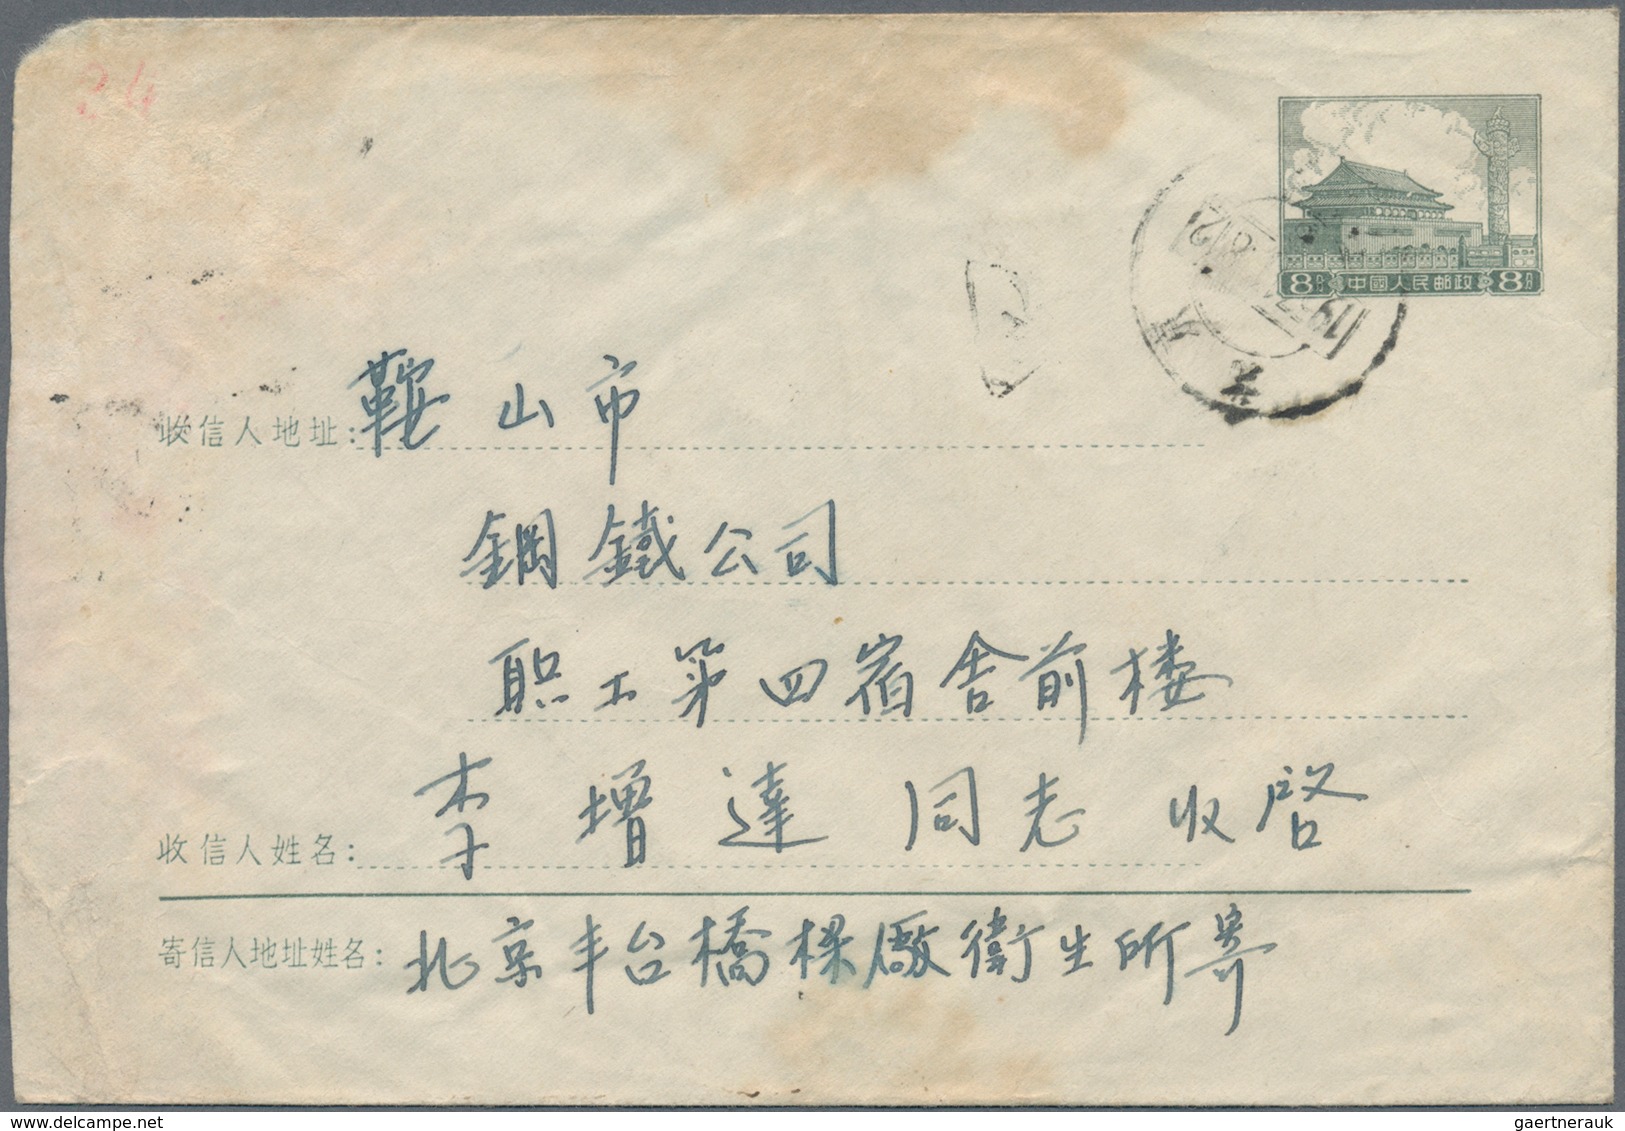 24
8分 中國人民邮政 8分
北京
收信人地址: 鞍山市
鋼鐵公司
职工第四宿舍前楼
收信人姓名: 李增達同志 收启
寄信人地址姓名: 北京丰台橋樑廠衛生所寄
gaertnerauk